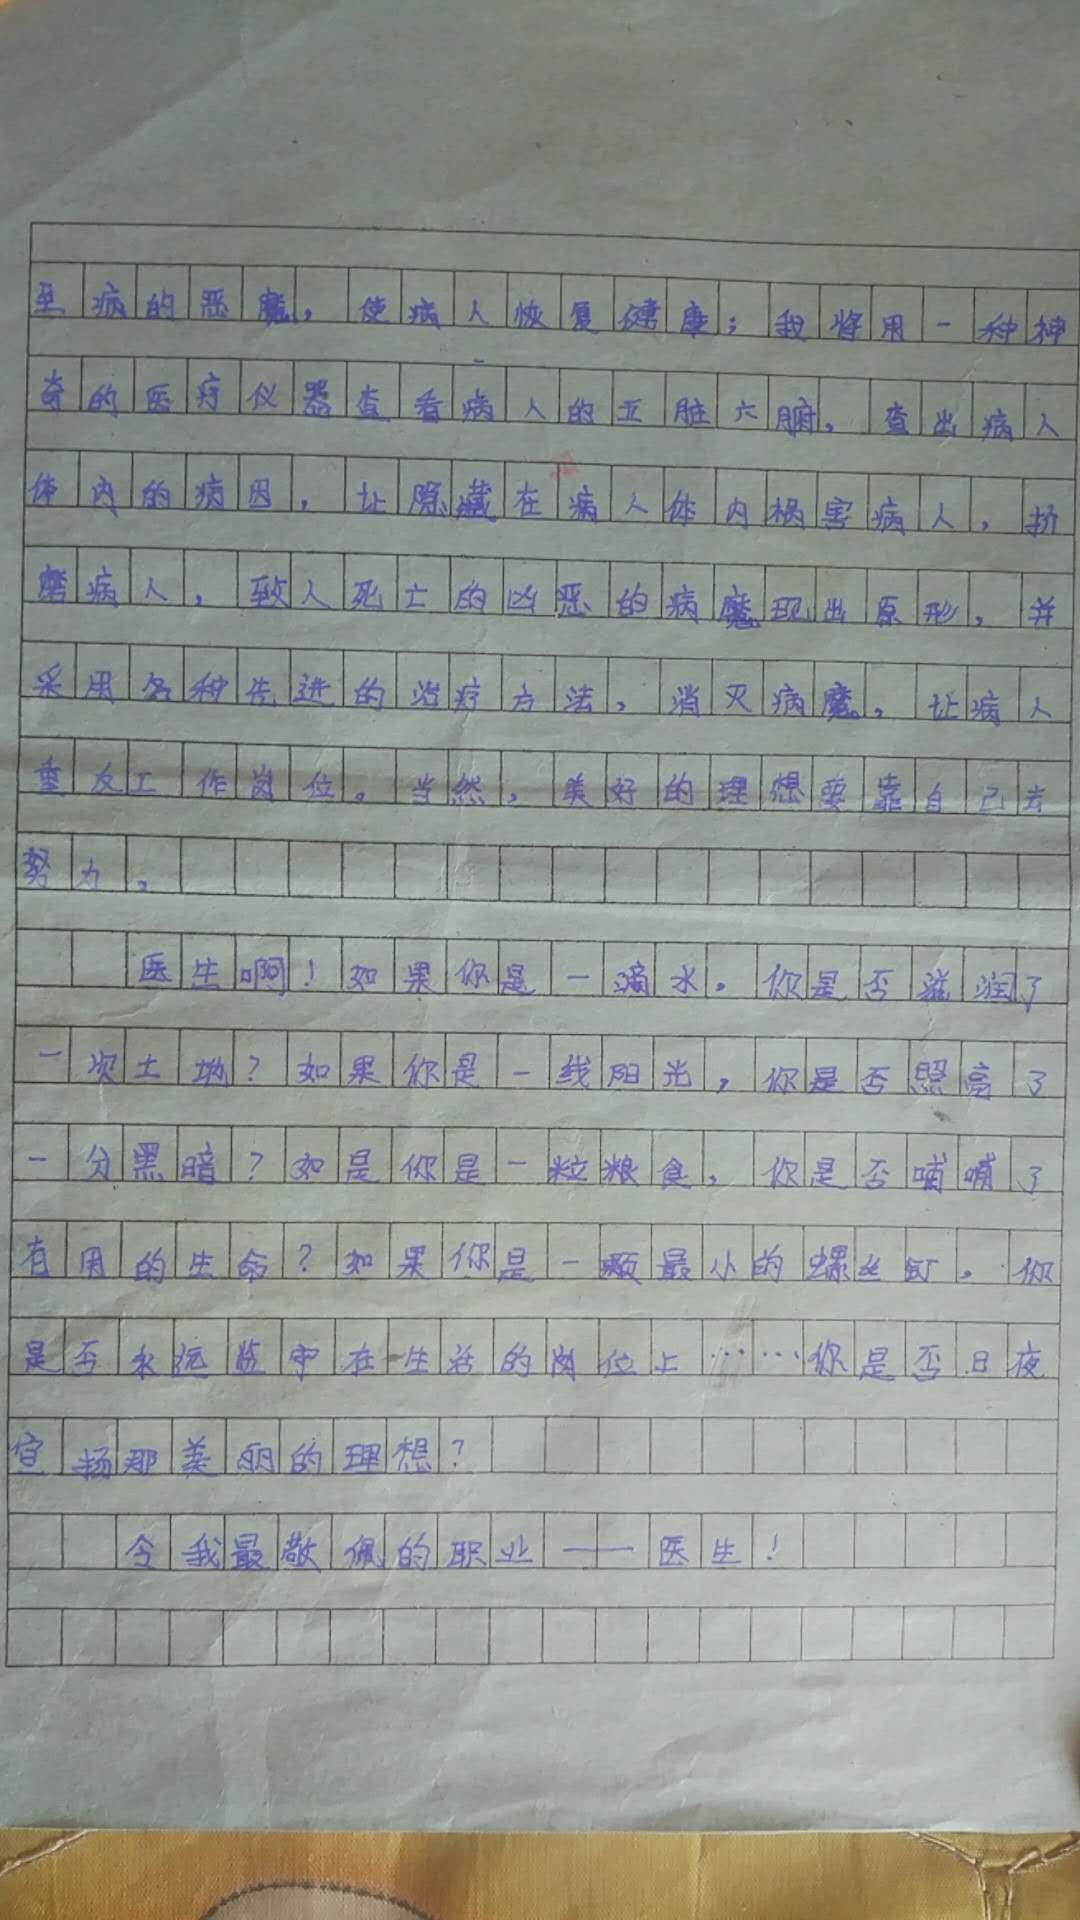 至病的恶魔，使病人恢复健康；我将用一种神
奇的医疗仪器查看病人的五脏六腑，查出病人
体内的病因，让隐藏在病人体内祸害病人，折
磨病人，致人死亡的凶恶的病魔现出原形，并
采用各种先进的治疗方法，消灭病魔，让病人
重反工作岗位。当然，美好的理想要靠自己去
努力。
医生啊！如果你是一滴水。你是否滋润了
一次土地？如果你是一线阳光，你是否照亮了
一分黑暗？如是你是一粒粮食，你是否哺哺了
有用的生命？如果你是一颗最小的螺丝钉。你
是否永远监守在生活的岗位上……你是否日夜
宣扬那美丽的理想？
令我最敬佩的职业——医生！